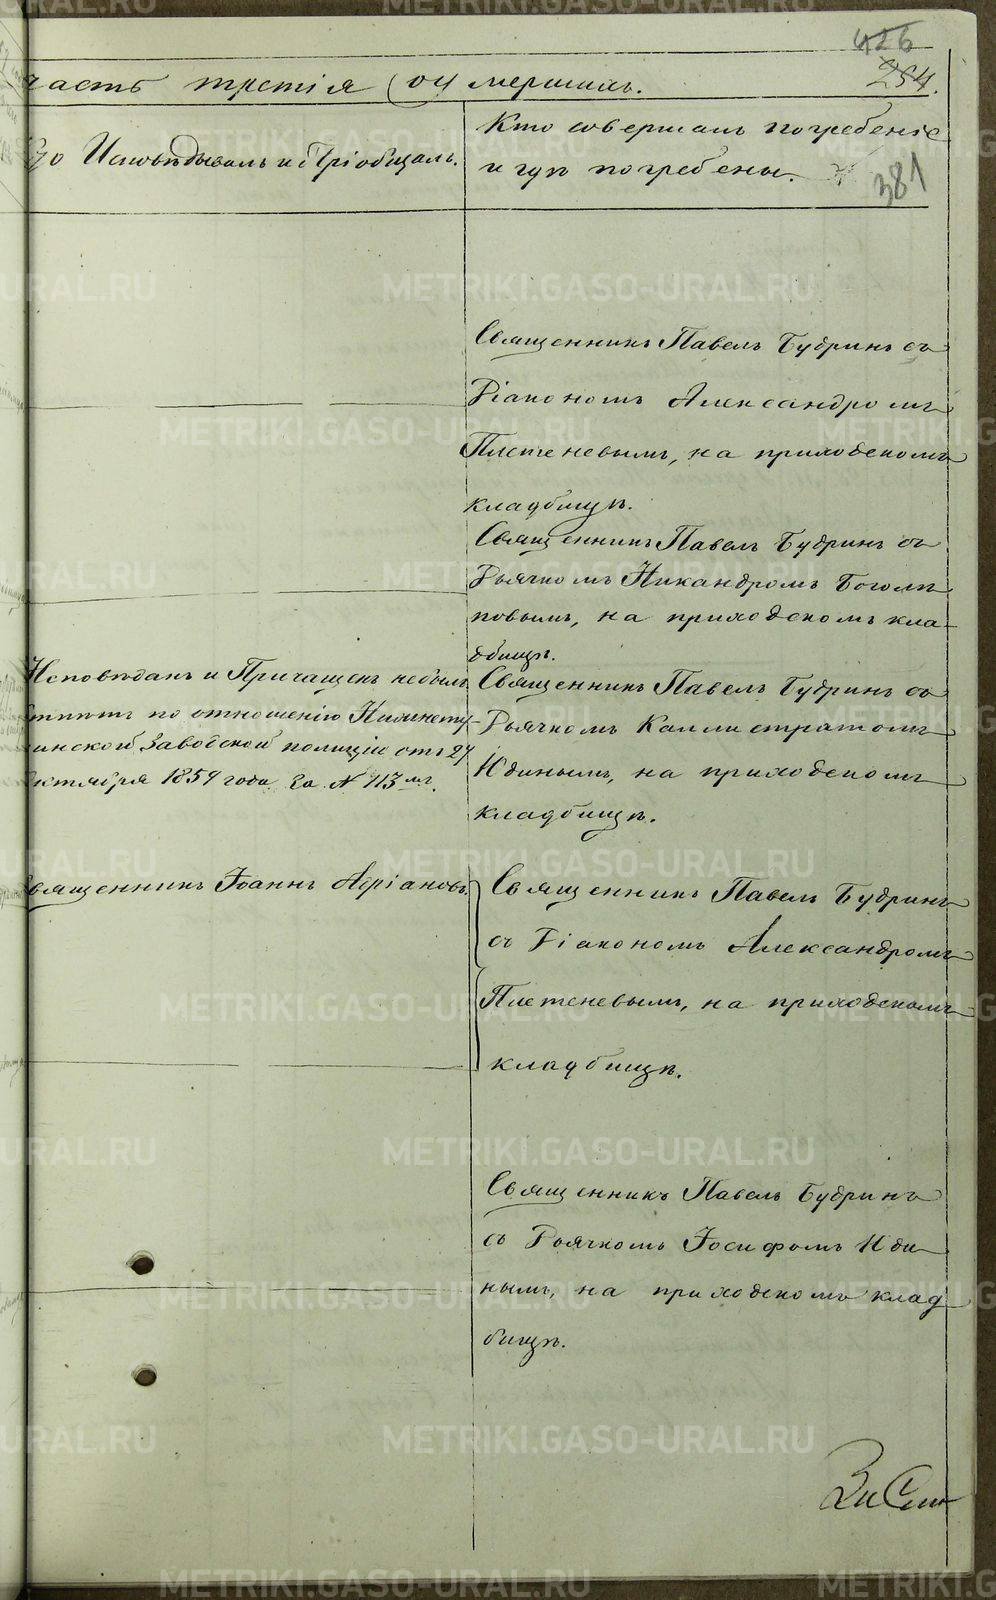 426
254.
часть третія оумершихъ.
381
Кто Исповѣдывалъ и Пріобщалъ.
Кто совершалъ погребеніе
и гдѣ погребены.
Священникъ Павелъ Будринъ съ
Діакономъ Александромъ
Плетеневымъ, на приходскомъ
кладбищѣ.
Священникъ Павелъ Будринъ съ
Дьячкомъ Никандромъ Боголѣ
повымъ, на приходскомъ кла-
дбищѣ.
Исповѣданъ и Причащенъ небылъ
по отношенію Нижнету-
инской Заводской полиціи отъ 27
ктября 1859 года за N 113мъ.
Священникъ Павелъ Будринъ съ
Дьячкомъ Каллистратомъ
Юдинымъ, на приходскомъ
кладбищѣ.
вященникъ Іоаннъ Адріановъ.
Священникъ Павелъ Будринъ
съ Діакономъ Александромъ
Плетеневымъ, на приходскомъ
кладбищѣ.
Священникъ Павелъ Будринъ
съ Дьячкомъ Іосифомъ Юди
нымъ, на приходскомъ клад
бищѣ.
METRIKI.GASO-URAL.RU